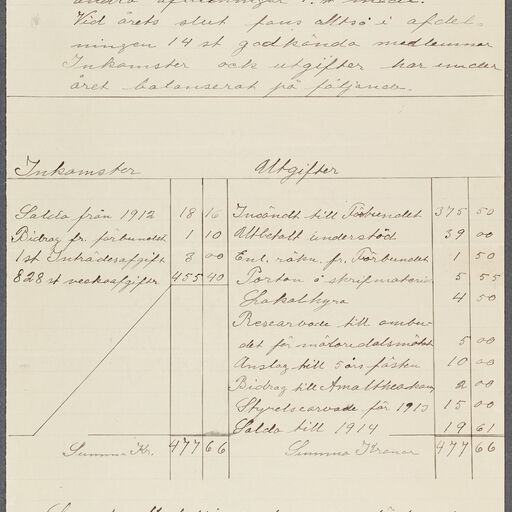 andra afdelningar 1. st
Vid årets slut fans alltså i afdel-
ningen 14 st godkända medlemmar
Inkomster och utgifter har under
året balanserat på följande.
Inkomster
Saldo från 1912 18 16
Bidrag fr. förbundet 1 10
1st Inträdesafgift 3 00
828 st veckoafgifter 455 40
Summa Kr. 477 66
Utgifter
Insändt till Förbundet 375 50
Utbetalt understöd 39 00
Enl. räkn. fr. Förbundet 1 50
Porton o skrifmaterial 5 55
Lokalhyra 4 50
Researvode till ombu-
det för mälaredalsmötet 5 00
Anslag till 5 års fästen 10 00
Bidrag till Amalthea 2 00
Styrelsearvode för 1913 15 00
Saldo till 1914 19 61
Summa Kronor 477 66